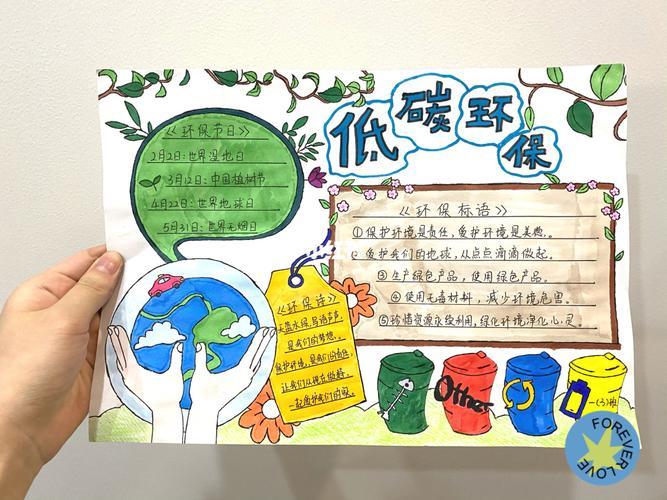 低碳环保
《环保节日》
2月2日:世界湿地日
3月12日:中国植树节
4月22日:世界地球日
5月31日:世界无烟日
《环保标语》
①保护环境是责任,爱护环境是美德。
②爱护我们的地球,从点点滴滴做起。
③生产绿色产品,使用绿色产品。
④使用无毒材料,减少环境危害。
⑤珍惜资源永续利用,绿化环境净化心灵。
《环保诗》
天蓝水绿,鸟语声声,
是我们的梦想。
保护环境,是我们的责任,
让我们从现在做起,
一起
Other
一(3)班
FOREVER
LOVE